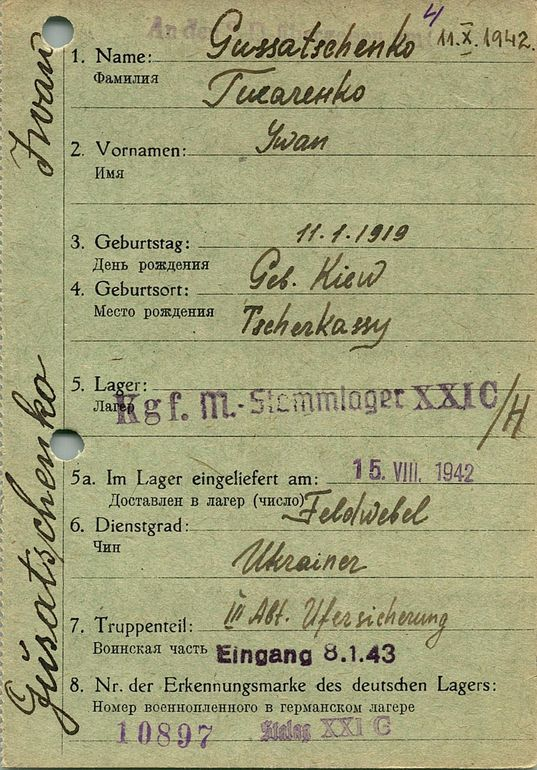 4
11.X.1942.
1. Name: Gussatschenko
Фамилия
2. Vornamen: Iwan
Имя
3. Geburtstag: 11.1.1919
День рождения
4. Geburtsort: Geb. Kiew
Место рождения Tscherkassy
5. Lager:
Лагерь Kgf. M.-Stammlager XXI C/H
5a. Im Lager eingeliefert am: 15. VIII. 1942
Доставлен в лагерь (число)
6. Dienstgrad: Feldwebel
Чин
Ukrainer
7. Truppenteil: III Abt. Ufersicherung
Воинская часть Eingang 8.1.43
8. Nr. der Erkennungsmarke des deutschen Lagers:
Номер военнопленного в германском лагере
10897 Stalag XXI C
Gusatschenko Iwan